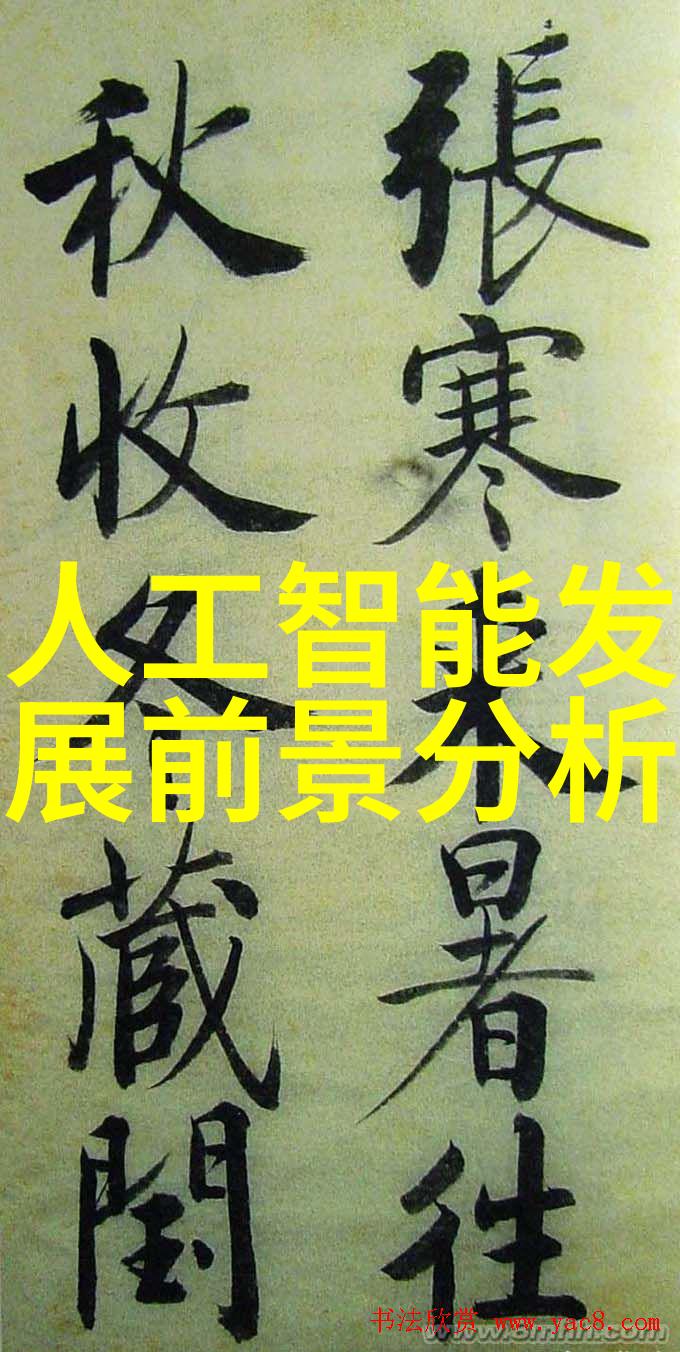 張寒来暑往
秋收冬蔵閏
人工智能发
展前景分析
书法欣赏 www.yac8.com